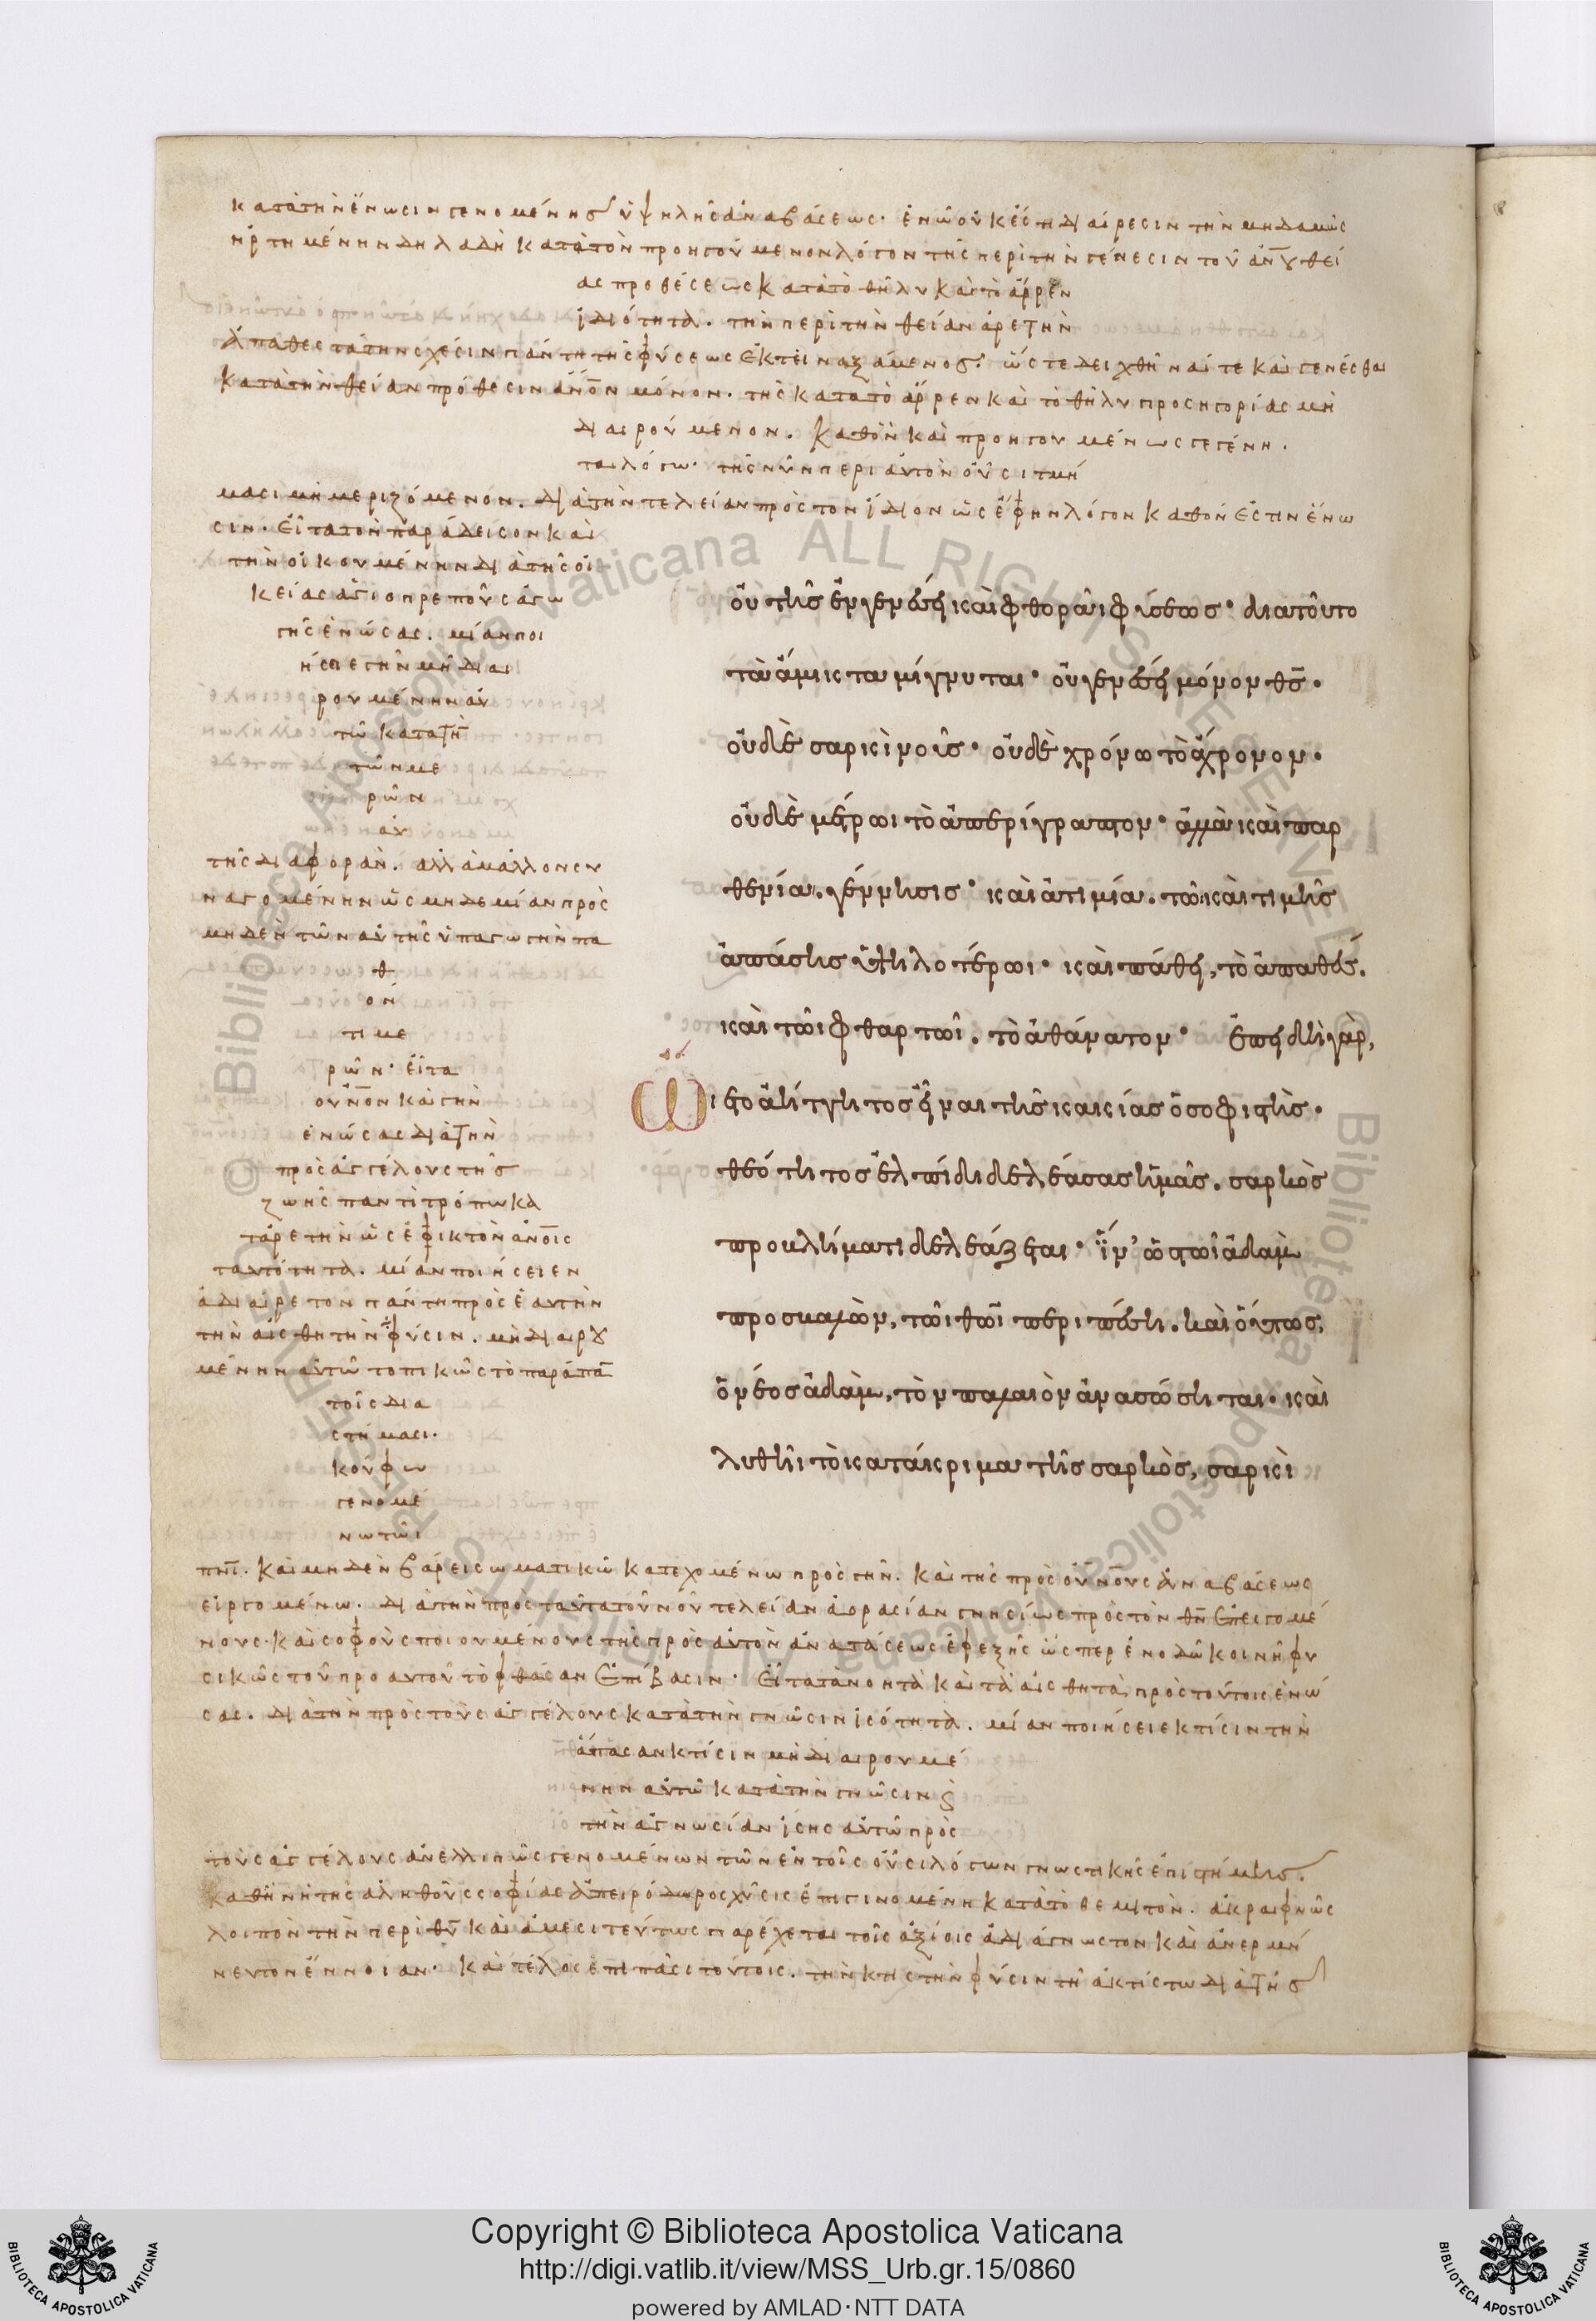 κατὰ τὴν ἕνωσιν γενομένης ὑψηλῆς ἀναβάσεως· ἐν ᾧ οὐκ ἔστι διαίρεσιν τὴν μηδαμῶς
ἠρτημένην δηλαδὴ κατὰ τὸν προηγούμενον λόγον τῆς περὶ τὴν γένεσιν τοῦ ἀν̅ου θεί
ας προθέσεως κατὰ τὸ θῆλυ καὶ τὸ ἄρρεν
ἰδιότητα. τὴν περὶ τὴν θείαν ἀρετὴν
ἀπαθεστάτην σχέσιν πάντη τῆς φύσεως ἐκτειναξάμενος· ὥστε δειχθῆναί τε καὶ γενέσθαι
κατὰ τὴν θείαν πρόθεσιν ἄν̅ον μόνον. τῆς κατὰ τὸ ἄρρεν καὶ τὸ θῆλυ προσηγορίας μὴ
διαιρούμενον. καθ' ὃν καὶ προηγουμένως γεγένη.
ται λόγω· τῆς νῦν περὶ αὐτὸν οὖσι τμή
μασι μὴ μεριζόμενον. διὰ τὴν τελείαν πρὸς τὸν ἴδιον ὡς ἔφην λόγον καθ' ὅν ἐστιν ἕνω
σιν· εἶτα τὸν παράδεισον καὶ
τὴν οἰκουμένην διὰ τῆς οἰ
κείας ἁγιοπρεποῦς ἀγω
γῆς ἑνώσας. μίαν ποι
ήσειε γῆν μὴ διαι
ρουμένην αὐ
τῶ κατὰ τὴν
τῶν με
ρῶν
αὐ
τῆς διαφοράν. ἀλλὰ μᾶλλον συ
ναγομένην ὡς μηδεμίαν πρὸς
μηδὲν τῶν αὐτῆς ὑπαγωγὴν πα
θ
όν
τι με
ρῶν· εἶτα
οὐν̅ον καὶ γῆν
ἑνώσας διὰ τὴν
πρὸς ἀγγέλους τῆς
ζωῆς παντὶ τρόπω κα
τ' ἀρετὴν ὡς ἐφικτὸν ἀν̅οις
ταυτότητα. μίαν ποιήσειεν
ἀδιαίρετον πάντη πρὸς ἑαυτὴν
τὴν αἰσθητὴν φύσιν. μὴ διαιρου
μένην αὐτῶ τοπικῶς τὸ παράπαν
τοῖς δια
στήμασι.
κούφω
γενομέ
νω τῶι
πν̅ι. καὶ μηδενὶ βάρει σωματικῶ κατεχομένω πρὸς γῆν. καὶ τῆς πρὸς οὐν̅ους ἀναβάσεως
εἰργομένω. διὰ τὴν πρὸς ταῦτα τοῦ νοῦ τελείαν ἀορασίαν γνησίως πρὸς τὸν θ̅ν ἐπειγομέ
νους· καὶ σοφοὺς ποιουμένους τῆς πρὸς αὐτὸν ἀνατάσεως ἐφεξῆς ὥσπερ ἐν ὁδῶ κοινῆ φυ
σικῶς τοῦ πρὸ αὐτοῦ τὸ φθάσαν ἐπίβασιν· εἶτα τὰ νοητὰ καὶ τὰ αἰσθητὰ πρὸς τούτοις ἑνώ
σας. διὰ τὴν πρὸς τοὺς ἀγγέλους κατὰ τὴν γνῶσιν ἰσότητα. μίαν ποιήσειε κτίσιν τὴν
ἅπασαν κτίσιν μὴ διαιρουμέ
νην αὐτῶ κατὰ τὴν γνῶσιν ϗ
τὴν ἀγνωσίαν ἴσης αὐτῶ πρὸς
τοὺς ἀγγέλους ἀνελλιπῶς γενομένων τῶν ἐν τοῖς οὖσι λόγων γνωστικῆς ἐπιστήμης.
καθ' ἣν ἡ τῆς ἀληθοῦς σοφίας ἀπειρόδωρος χύσις ἐπιγινομένη κατὰ τὸ θεμιτόν. ἀκραιφνῶς
λοιπὸν τὴν περὶ θ̅υ καὶ ἀμεσιτεύτως παρέχεται τοῖς ἀξίοις ἀδιάγνωστον καὶ ἀνερμή
νευτον ἔννοιαν· καὶ τέλος ἐπὶ πᾶσι τούτοις. τὴν κτιστὴν φύσιν τῆ ἀκτίστω δι' ἀγάπης
οὐ τῆς ἐν γενέσει καὶ φθορᾶι φύσεως· διατοῦτο
τὰ ἄμικτα μίγνυται· οὐ γενέσει μόνον θ̅ς.
οὐδὲ σαρκὶ νοῦς· οὐδὲ χρόνω τὸ ἄχρονον.
οὐδὲ μέτρωι τὸ ἀπερίγραπτον· ἀλλὰ καὶ παρ
θενία. γέννησις· καὶ ἀτιμία. τῶι καὶ τιμῆς
ἁπάσης ὑψηλοτέρωι· καὶ πάθει, τὸ ἀπαθές.
καὶ τῶι φθαρτῶι. τὸ ἀθάνατον· ἐπειδὴ γὰρ,
Ωιετο ἀήττητος εἶναι τῆς κακίας ὁ σοφιστής.
θεότητος ἐλπίδι δελεάσας ἡμᾶς. σαρκὸς
προβλήματι δελεάζεται· ἵν' ὡς τῶι ἀδὰμ
προσβαλὼν, τῶι θ̅ωι περιπέση. καὶ οὕτως,
ὁ νέος ἀδὰμ, τὸν παλαιὸν ἀνασώσηται· καὶ
λυθῆι τὸ κατάκριμα τῆς σαρκὸς, σαρκὶ
© Biblioteca Apostolica Vaticana ALL RIGHTS RESERVED
Copyright © Biblioteca Apostolica Vaticana
http://digi.vatlib.it/view/MSS_Urb.gr.15/0860
powered by AMLAD·NTT DATA
BIBLIOTECA APOSTOLICA VATICANA
BIBLIOTECA APOSTOLICA VATICANA